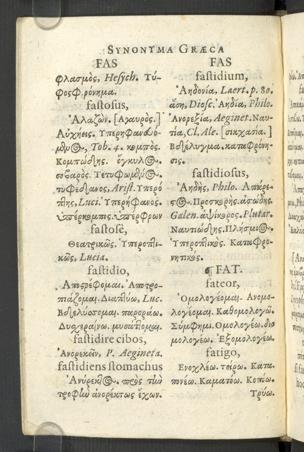 SYNONYMA GRÆCA
FAS
φλασμὸς, Hesych. Τύ-
φος φρόνημα.
fastosus,
Ἀλαζών. [Ἀγαυρός.]
Αὐχήεις. Ὑπερηφανευό-
μενος, Tob. 4. κομπός.
Κομπώδης. ὀγκυλος.
σοβαρός. Τετυφωμένος.
τυφεδανός, Arist. Ὑπερό
πτης, Luci. Ὑπερήφανος.
ὑπέρκομπος. ὑπέρφρων
fastosè,
Θεατρικῶς. Ὑπεροπτι-
κῶς, Lucia.
fastidio,
Ἀποστρέφομαι. Ἀποτρο-
πιάζομαι. Διαπτύω, Luc.
Βδελύσσομαι. παρορῶ.
Δυσχεραίνω. μυσάττομαι.
fastidire cibos,
Ἀνορεκτεῖν, P. Aegineta.
fastidiens stomachus
Ἀνόρεκτος. πρὸς τὴν
τροφὴν ἀνορέκτως ἔχων.
FAS
fastidium,
Ἀηδονία, Laert. p. 80.
ἄση, Diosc. Ἀηδία, Philo.
Ἀνορεξία, Aeginet. Ναυ-
τία, Cl. Ale. [σικχασία.]
Βδέλυγμα. καταφρόνη-
σις.
fastidiosus,
Ἀηδής, Philo. Ἀπόκρε-
Galen. ἁψίκορος. Plutar.
Ναυτιώδης. Πλήσμιος.
Ὑπεροπτικός. Καταφρο-
νητικός.
¶ FAT.
fateor,
Ὁμολογέομαι. Ἀνομο-
λογέομαι. Καθομολογῶ.
Σύμφημι. Ὁμολογέω. διο
μολογέω. Ἐξομολογέω.
fatigo,
Ἐνοχλέω. τείρω. Κατα-
πονέω. Καματόω. Κοπόω.
Τρύω.